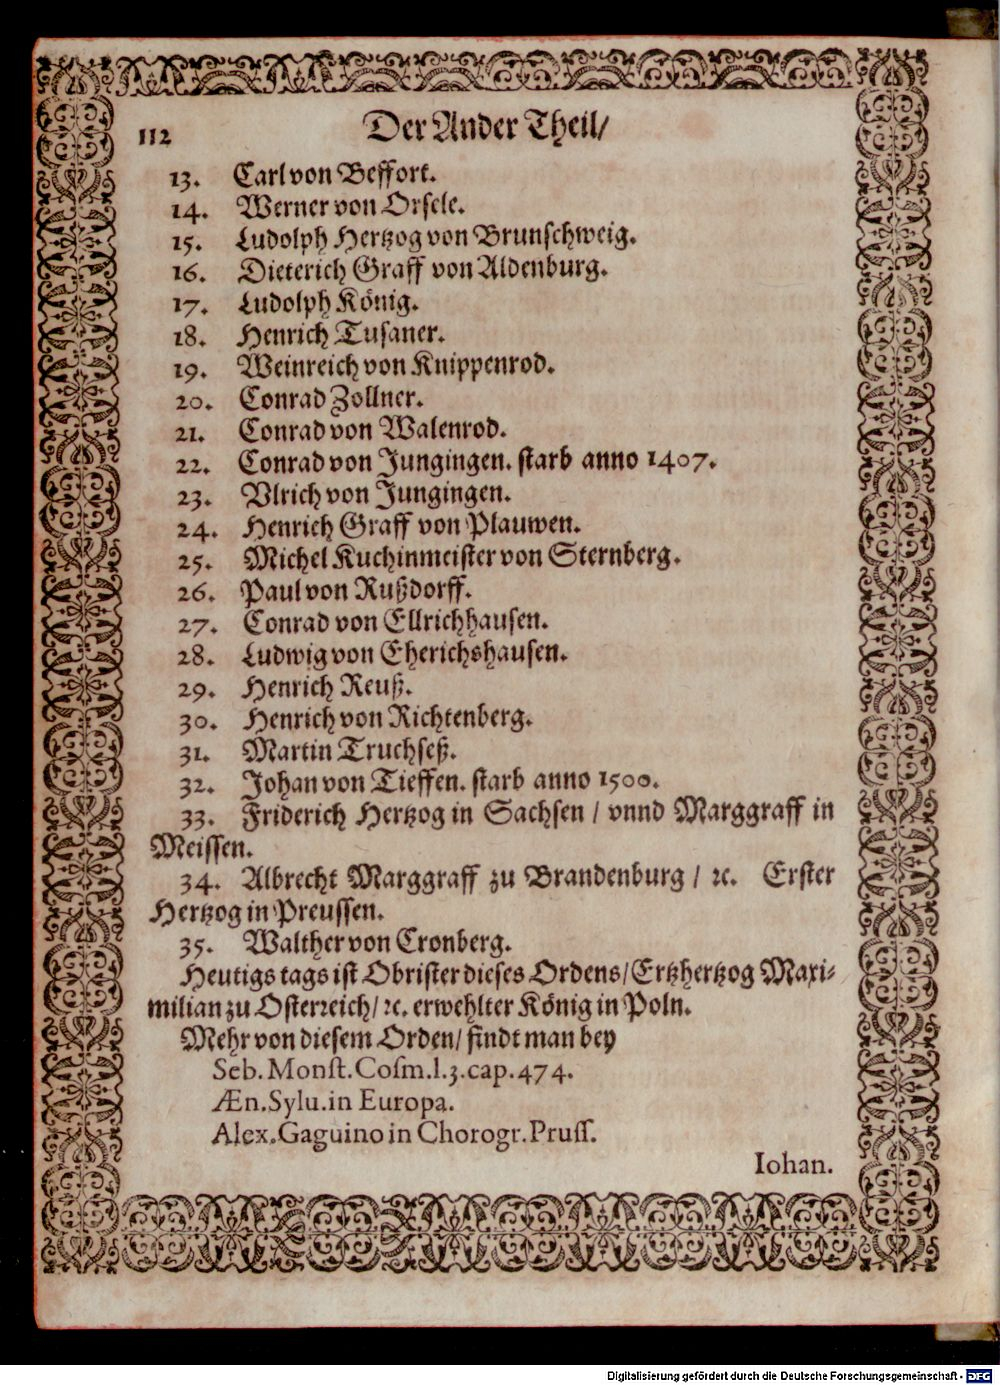 112 Der Ander Theil/
13. Carl von Beffort.
14. Werner von Orsele.
15. Ludolph Hertzog von Brunschweig.
16. Dieterich Graff von Aldenburg.
17. Ludolph König.
18. Henrich Tusaner.
19. Weinreich von Knippenrod.
20. Conrad Zollner.
21. Conrad von Walenrod.
22. Conrad von Jungingen. starb anno 1407.
23. Vlrich von Jungingen.
24. Henrich Graff von Plauwen.
25. Michel Kuchinmeister von Sternberg.
26. Paul von Rußdorff.
27. Conrad von Ellrichhausen.
28. Ludwig von Eherichshausen.
29. Henrich Reuß.
30. Henrich von Richtenberg.
31. Martin Truchseß.
32. Johan von Tieffen. starb anno 1500.
33. Friderich Hertzog in Sachsen / vnnd Marggraff in
Meissen.
34. Albrecht Marggraff zu Brandenburg / ꝛc. Erster
Hertzog in Preussen.
35. Walther von Cronberg.
Heutigs tags ist Obrister dieses Ordens/ Ertzhertzog Maxi-
milian zu Osterreich/ ꝛc. erwehlter König in Poln.
Mehr von diesem Orden/ findt man bey
Seb. Monst. Cosm. l. 3. cap. 474.
Æn. Sylu. in Europa.
Alex. Gaguino in Chorogr. Pruss.
Iohan.
Digitalisierung gefördert durch die Deutsche Forschungsgemeinschaft - DFG